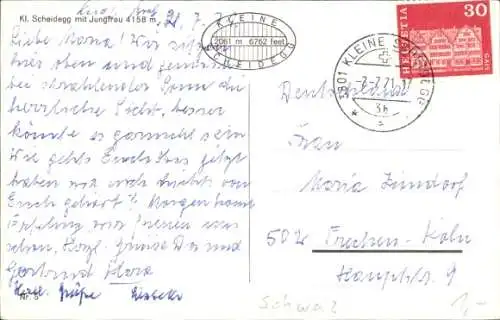 Kl. Scheidegg mit Jungfrau 4158 m
KLEINE
2061 m 6762 feet
SCHEIDEGG
HELVETIA
30
3801 KLEINE SCHEIDEGG
-2.-7.71.-17
Liebe Maria! Wir sitzen
hier oben und genießen
bei strahlender Sonne die
herrliche Sicht, besser
könnte es garnicht sein
Wie gehts Euch? Bis jetzt
haben wir noch nichts von
Euch gehört? Morgen kommt
von
Herzl. Grüße Dir und
Gertrud
Herzl. Grüße
Nr. 5
Deutschland
Frau
Maria Zündorf
502 Frechen-Köln
Hauptstr. 9
Schweiz
1,-